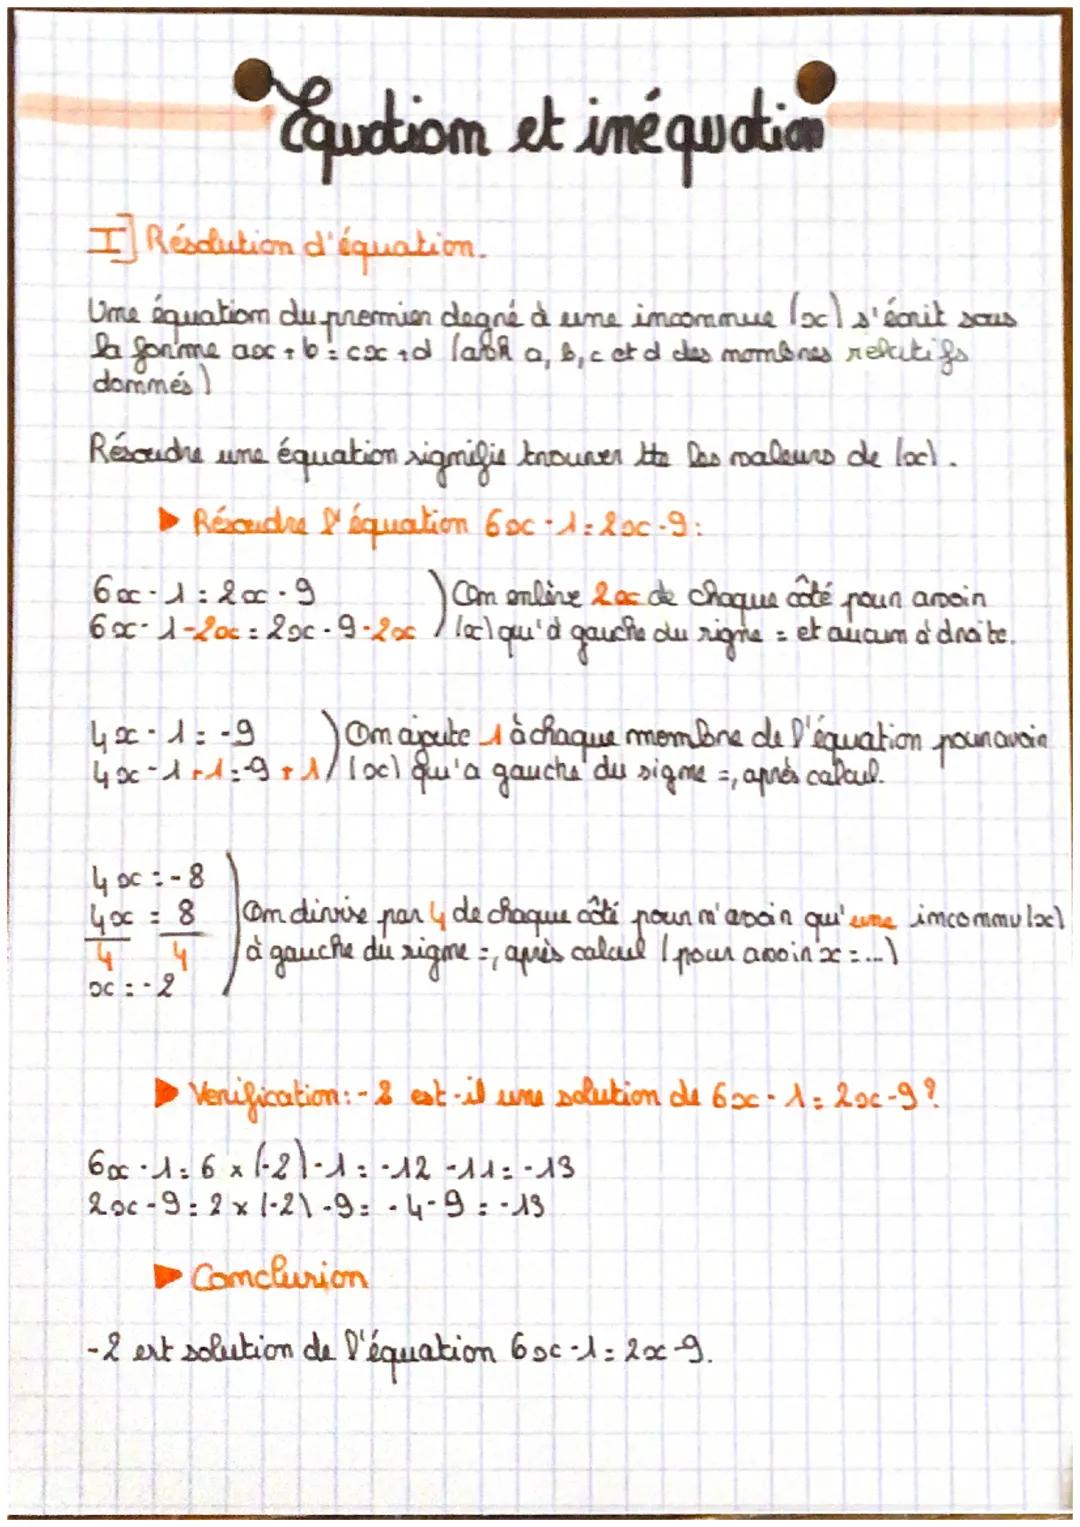 Equation et inéquation
I] Résolution d'équation.
Une équation du premier degré à une inconnue (x) s'écrit sous
la forme ax + b = cx + d (a, b, c et d des nombres relatifs
donnés)
Résoudre une équation signifie trouver tte les valeurs de (x).
▶ Résoudre l'équation 6x - 1 = 2x - 9 :
6x - 1 = 2x - 9 ) On enlève 2x de chaque côté pour avoir
6x - 1 - 2x = 2x - 9 - 2x (x) qu'à gauche du signe = et aucun à droite.
4x - 1 = -9 ) On ajoute 1 à chaque membre de l'équation pour avoir
4x - 1 + 1 = -9 + 1 (x) qu'a gauche du signe =, après calcul.
4x = -8
4x = 8 ) On divise par 4 de chaque côté pour n'avoir qu'une inconnu (x)
4 4 à gauche du signe =, après calcul (pour avoir x = ...)
x = -2
▶ Verification : -2 est-il une solution de 6x - 1 = 2x - 9 ?
6x - 1 = 6 x (-2) - 1 = -12 - 11 = -13
2x - 9 = 2 x (-2) - 9 = -4 - 9 = -13
▶ Conclusion
-2 est solution de l'équation 6x - 1 = 2x - 9.